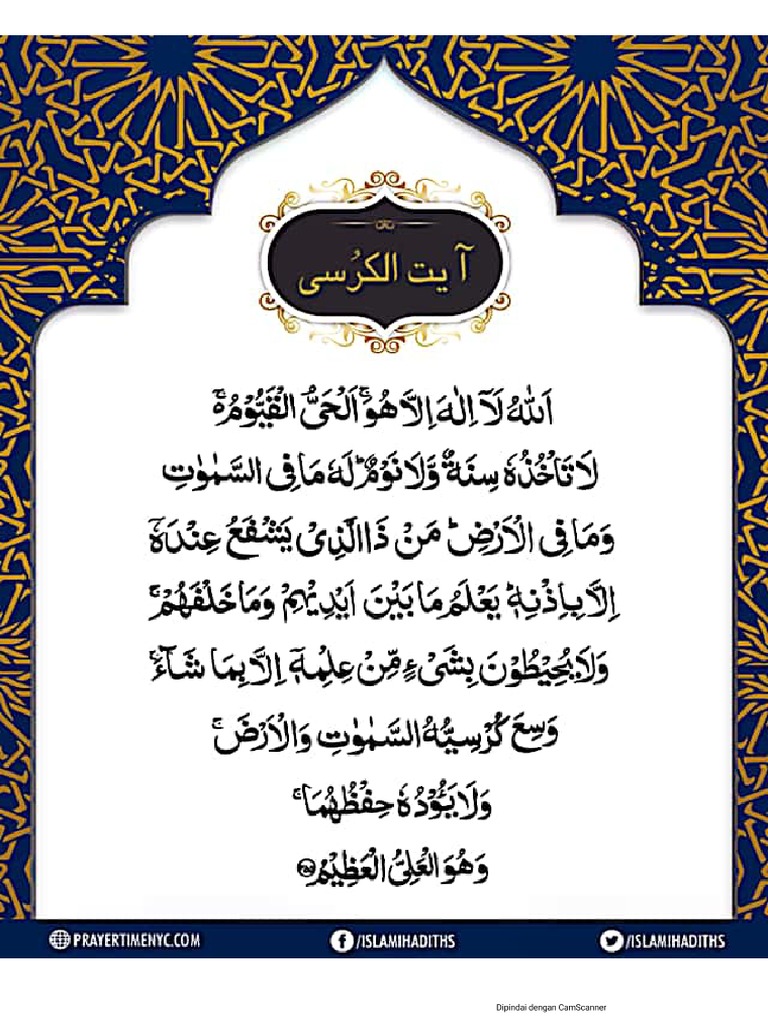 آیت الکرُسی
اَللّٰهُ لَاۤ اِلٰهَ اِلَّا هُوَۚ اَلْحَیُّ الْقَیُّوْمُ۬ۚ
لَا تَاْخُذُهٗ سِنَةٌ وَّلَا نَوْمٌؕ لَهٗ مَا فِی السَّمٰوٰتِ
وَمَا فِی الْاَرْضِؕ مَنْ ذَا الَّذِیْ یَشْفَعُ عِنْدَهٗۤ
اِلَّا بِاِذْنِهٖؕ یَعْلَمُ مَا بَیْنَ اَیْدِیْهِمْ وَمَا خَلْفَهُمْۚ
وَلَا یُحِیْطُوْنَ بِشَیْءٍ مِّنْ عِلْمِهٖۤ اِلَّا بِمَا شَآءَۚ
وَسِعَ كُرْسِیُّهُ السَّمٰوٰتِ وَالْاَرْضَۚ
وَلَا یَـُٔوْدُهٗ حِفْظُهُمَاۚ
وَهُوَ الْعَلِیُّ الْعَظِیْمُ ﴿۲۵۵﴾
PRAYERTIMENYC.COM /ISLAMIHADITHS /ISLAMIHADITHS
Dipindai dengan CamScanner